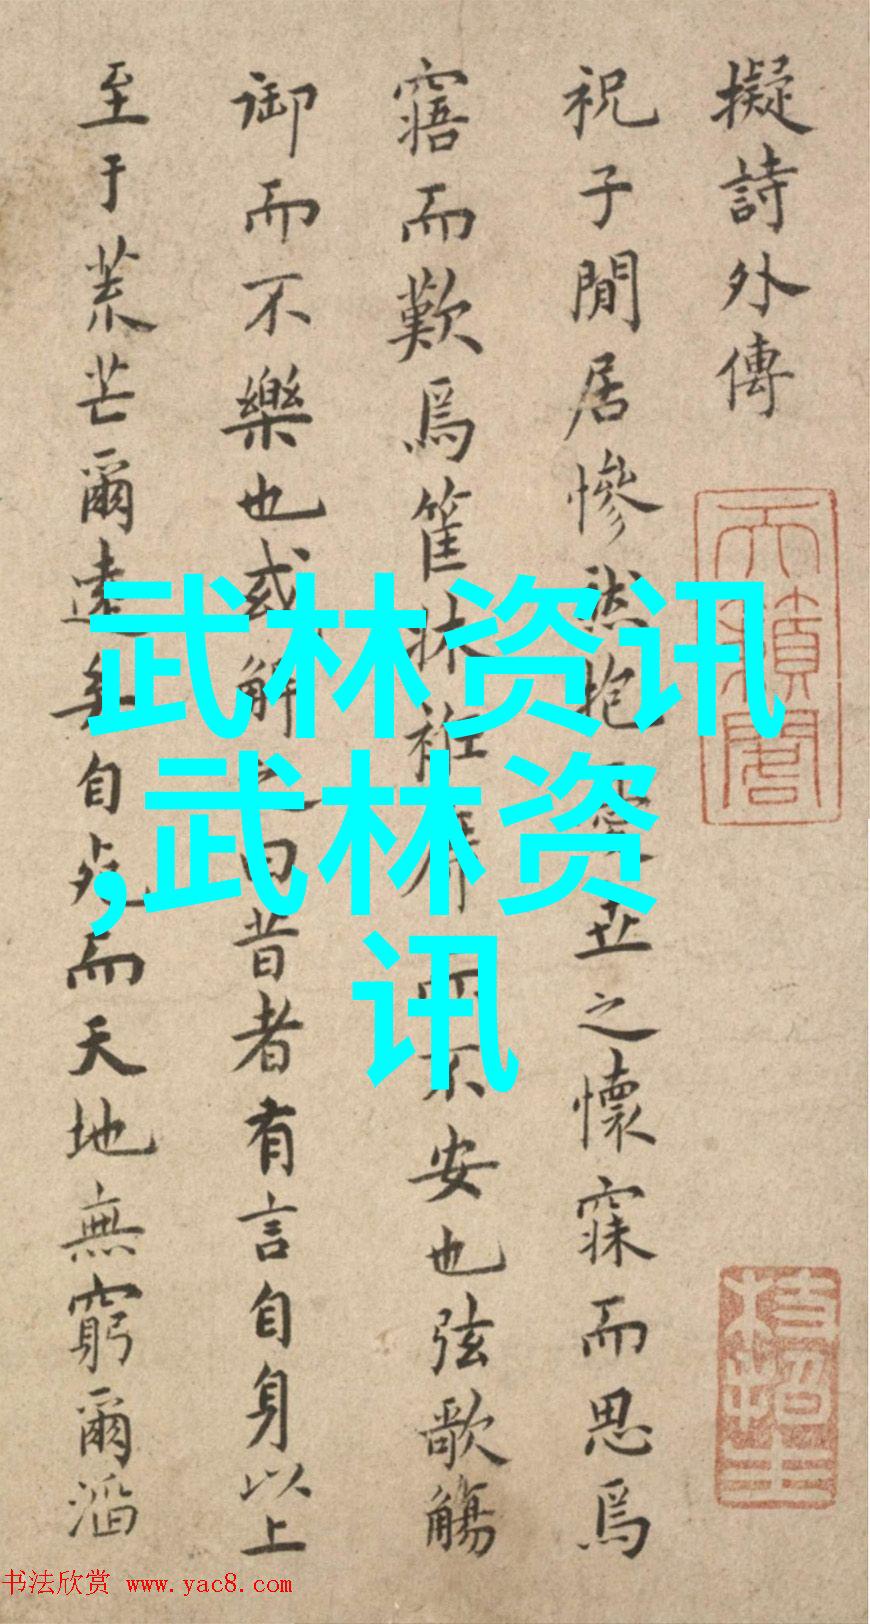 擬詩外傳
祝子閒居慘然抱之懷寐而思焉
寤而歎焉筐牀衽不安也弦歌觴
御而不樂也或解之曰昔者有言自身以上
至于荒芒爾遠矣自此而天地無窮爾滔
武林资讯
,武林资
讯
书法欣赏 www.yac8.com